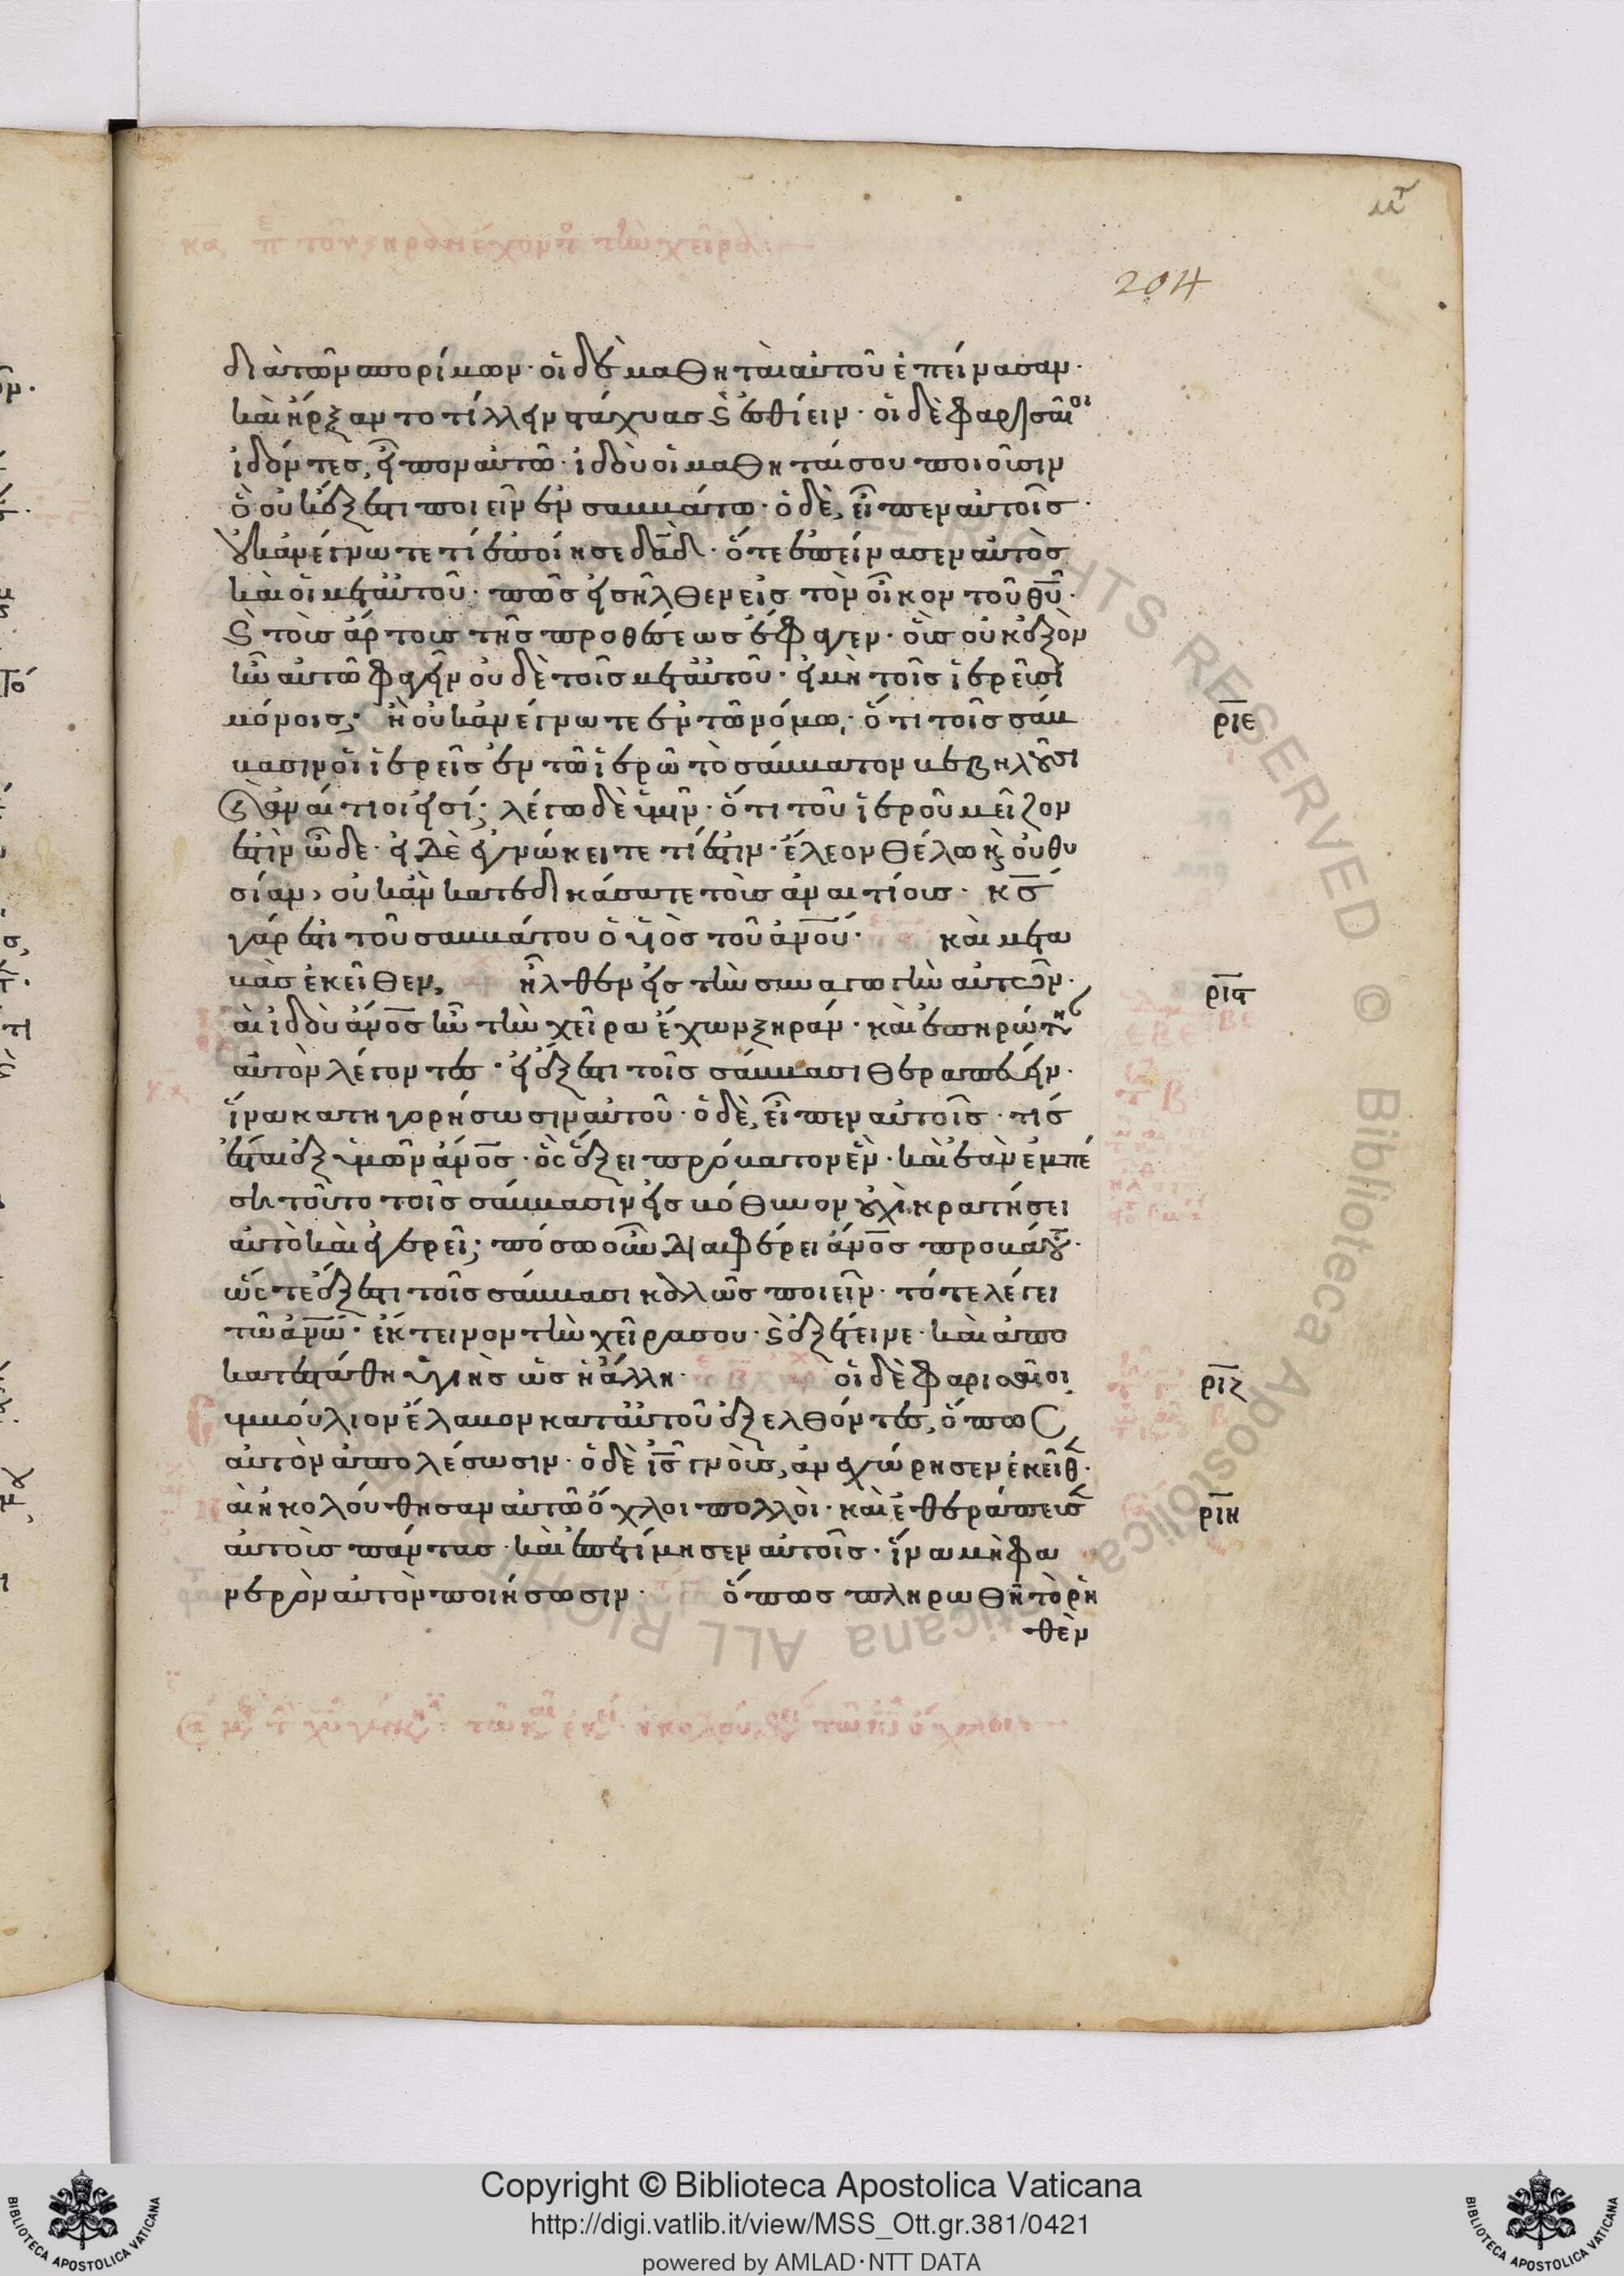 κα π τοῦ ξηρὰν ἔχοντος τὴν χεῖρα:
204
διὰ τῶν σπορίμων· οἱ δὲ μαθηταὶ αὐτοῦ ἐπείνασαν·
καὶ ἤρξαντο τίλλειν στάχυας ϗ ἐσθίειν· οἱ δὲ φαρισαῖοι
ἰδόντες, εἶπον αὐτῶ· ἰδοὺ οἱ μαθηταί σου ποιοῦσιν
ὃ οὐκ ἔξεστι ποιεῖν ἐν σαββάτω· ὁ δὲ, εἶπεν αὐτοῖς·
οὐκ ἀνέγνωτε τί ἐποίησε δα̅δ· ὅτε ἐπείνασεν αὐτὸς
καὶ οἱ μετ' αὐτοῦ· πῶς εἰσῆλθεν εἰς τὸν οἶκον τοῦ θυ̅·
ϗ τοὺς ἄρτους τῆς προθέσεως ἔφαγεν· οὓς οὐκ ἐξὸν
ἦν αὐτῶ φαγεῖν οὐδὲ τοῖς μετ' αὐτοῦ· εἰ μὴ τοῖς ἱερεῦσι
μόνοις; ἢ οὐκ ἀνέγνωτε ἐν τῶ νόμω, ὅτι τοῖς σάβ
βασιν οἱ ἱερεῖς ἐν τῶ ἱερῶ τὸ σάββατον βεβηλοῦσι
ϗ ἀναίτιοί εἰσι; λέγω δὲ ὑμῖν· ὅτι τοῦ ἱεροῦ μεῖζον
ἐστὶν ὧδε· εἰ δὲ ἐγνώκειτε τί ἐστιν· ἔλεον θέλω ϗ οὐ θυ
σίαν, οὐκ ἂν κατεδικάσατε τοὺς ἀναιτίους· κς̅
γάρ ἐστι τοῦ σαββάτου ὁ υἱὸς τοῦ ἀν̅ου· καὶ μετα
βὰς ἐκεῖθεν, ἦλθεν εἰς τὴν συναγωγὴν αὐτῶν·
αὶ ἰδοὺ ἄν̅ος ἦν τὴν χεῖρα ἔχων ξηράν· καὶ ἐπηρώτησαν
αὐτὸν λέγοντες· εἰ ἔξεστι τοῖς σάββασι θεραπεύειν·
ἵνα κατηγορήσωσιν αὐτοῦ· ὁ δὲ, εἶπεν αὐτοῖς· τίς
ἔσται ἐξ ὑμῶν ἄν̅ος· ὃς ἕξει πρόβατον ἕν· καὶ ἐὰν ἐμπέ
σῃ τοῦτο τοῖς σάββασιν εἰς βόθυνον οὐχὶ κρατήσει
αὐτὸ καὶ ἐγερεῖ; πόσω οὖν διαφέρει ἄν̅ος προβάτου·
ὥστε ἔξεστι τοῖς σάββασι καλῶς ποιεῖν· τότε λέγει
τῶ ἀν̅ω· ἔκτεινον τὴν χεῖρα σου· ϗ ἐξέτεινε· καὶ ἀπο
κατεστάθη ὑγιὴς ὡς ἡ ἄλλη· οἱ δὲ φαρισαῖοι
υμβούλιον ἔλαβον κατ' αὐτοῦ ἐξελθόντες, ὅπως
αὐτὸν ἀπολέσωσιν· ὁ δὲ ἰς̅ γνοὺς, ἀνεχώρησεν ἐκεῖθεν·
αὶ ἠκολούθησαν αὐτῶ ὄχλοι πολλοὶ· καὶ ἐθεράπευσεν
αὐτοὺς πάντας· καὶ ἐπετίμησεν αὐτοῖς· ἵνα μὴ φα
νερὸν αὐτὸν ποιήσωσιν· ὅπως πληρωθῆ τὸ ῥη
θὲν
ρ̅ι̅ε̅
ρ̅ι̅ϛ̅
ρ̅ι̅ζ̅
ρ̅ι̅η̅
ALL RIGHTS RESERVED © Biblioteca Apostolica Vaticana ALL RIGHTS
Copyright © Biblioteca Apostolica Vaticana
http://digi.vatlib.it/view/MSS_Ott.gr.381/0421
powered by AMLAD·NTT DATA
BIBLIOTECA APOSTOLICA VATICANA
BIBLIOTECA APOSTOLICA VATICANA